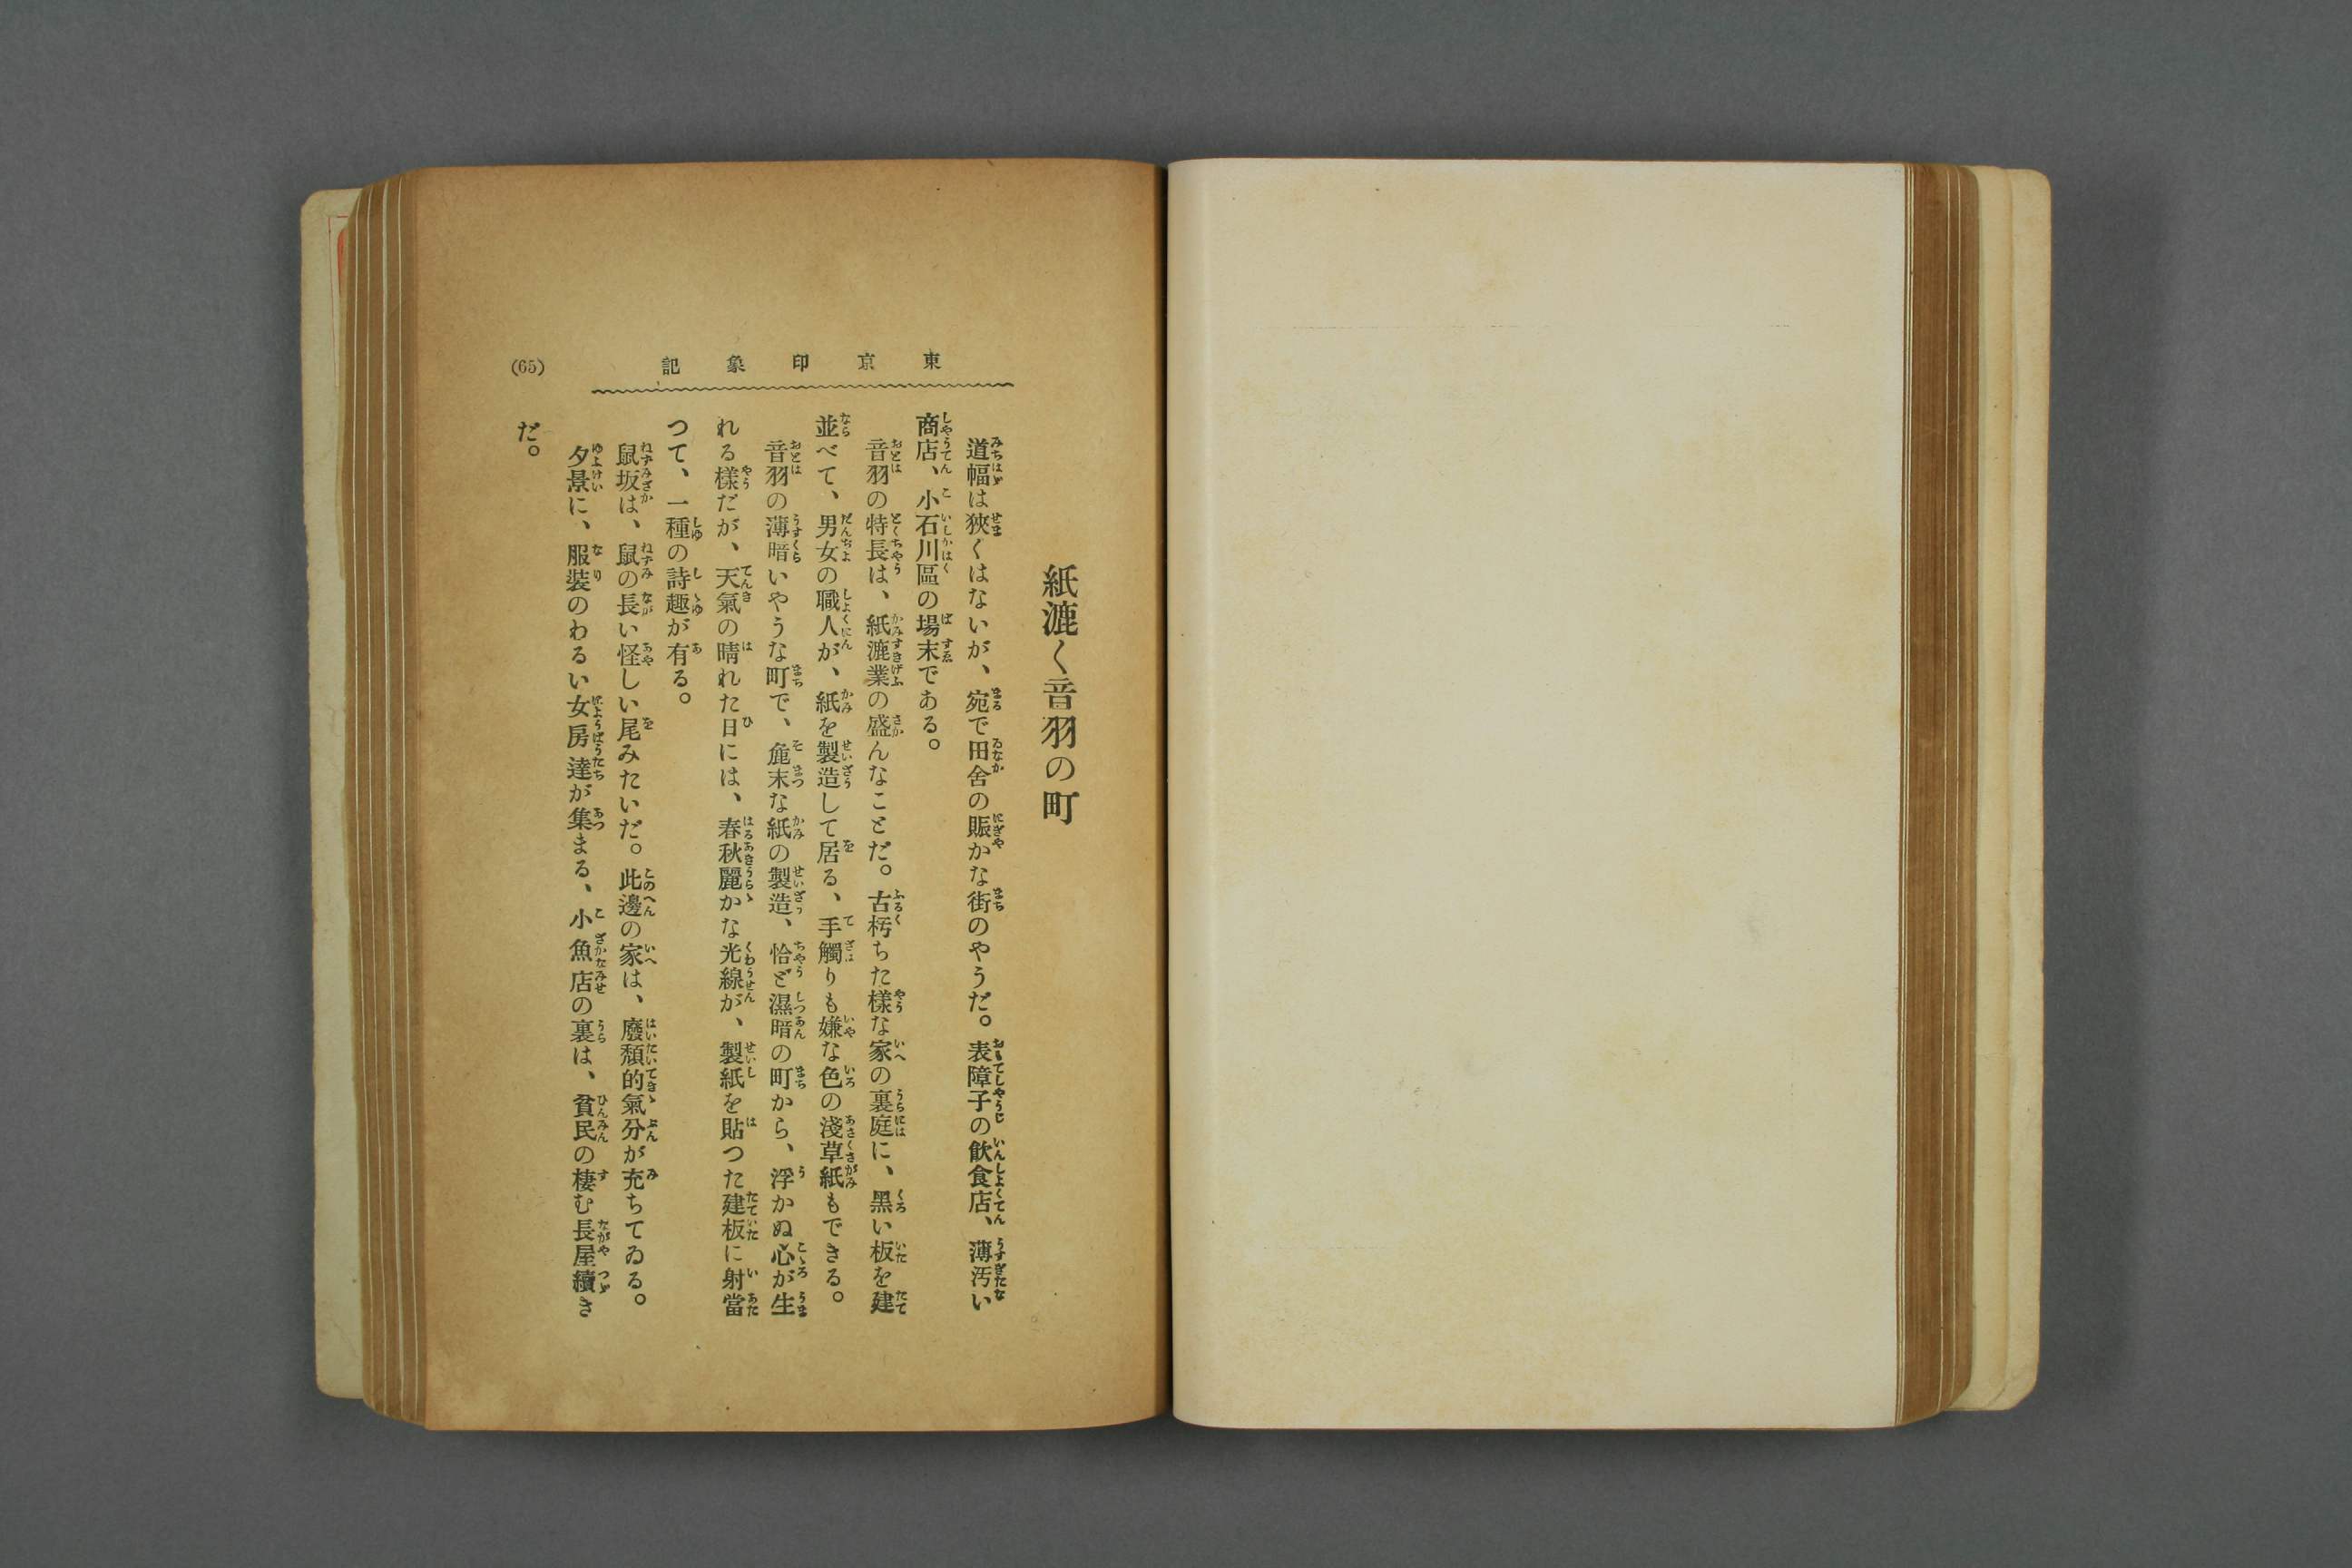 東京印象記
(65)
紙漉く音羽の町
道幅は狹くはないが、宛で田舍の賑かな街のやうだ。表障子の飮食店、薄汚い
商店、小石川區の場末である。
音羽の特長は、紙漉業の盛んなことだ。古朽ちた樣な家の裏庭に、黑い板を建
並べて、男女の職人が、紙を製造して居る、手觸りも嫌な色の淺草紙もできる。
音羽の薄暗いやうな町で、麁末な紙の製造、恰ど濕暗の町から、浮かぬ心が生
れる樣だが、天氣の晴れた日には、春秋麗かな光線が、製紙を貼つた建板に射當
つて、一種の詩趣が有る。
鼠坂は、鼠の長い怪しい尾みたいだ。此邊の家は、廢頽的氣分が充ちてゐる。
夕景に、服裝のわるい女房達が集まる、小魚店の裏は、貧民の棲む長屋續き
だ。